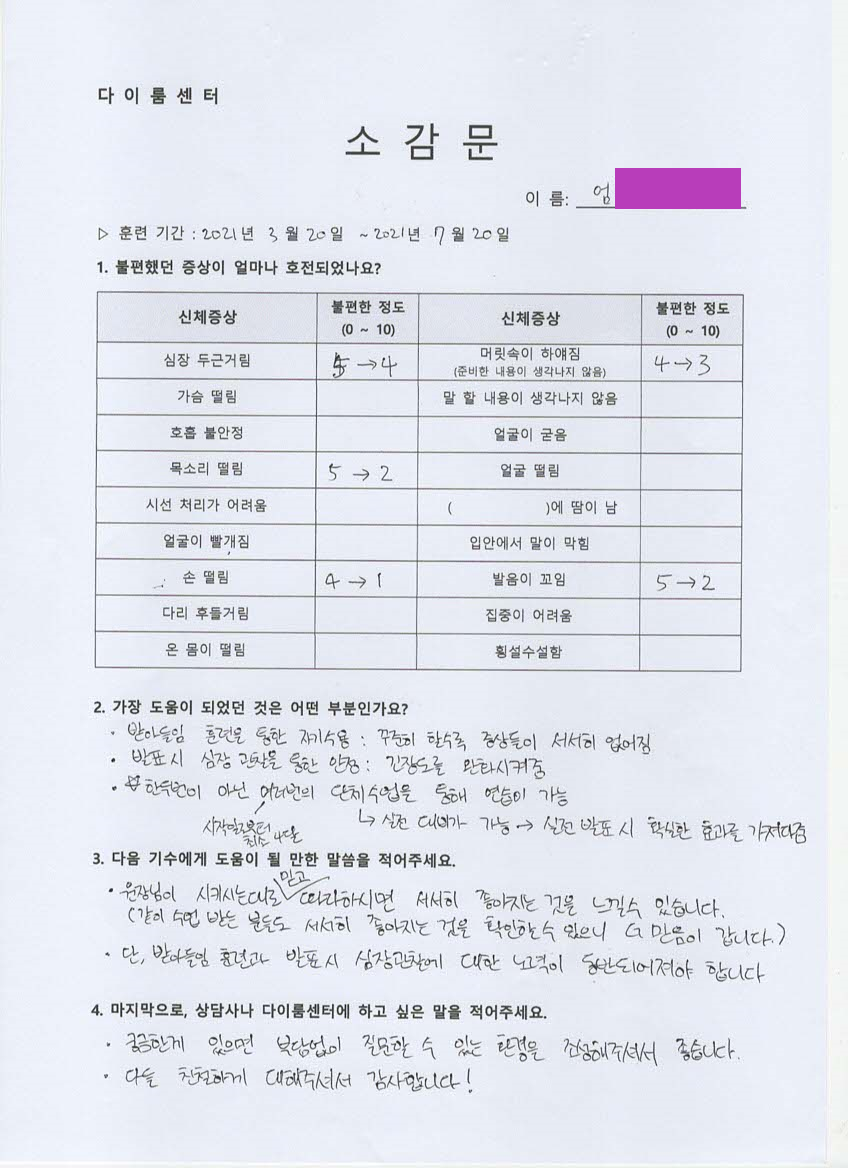 다이룸센터
소 감 문
이 름: 엄
▷ 훈련 기간 : 2021년 3월 20일 ~ 2021년 7월 20일
1. 불편했던 증상이 얼마나 호전되었나요?
신체증상 불편한 정도 (0 ~ 10) 신체증상 불편한 정도 (0 ~ 10)
심장 두근거림 5 → 4 머릿속이 하얘짐 (준비한 내용이 생각나지 않음) 4 → 3
가슴 떨림 말 할 내용이 생각나지 않음
호흡 불안정 얼굴이 굳음
목소리 떨림 5 → 2 얼굴 떨림
시선 처리가 어려움 ( )에 땀이 남
얼굴이 빨개짐 입안에서 말이 막힘
손 떨림 4 → 1 발음이 꼬임 5 → 2
다리 후들거림 집중이 어려움
온 몸이 떨림 횡설수설함
2. 가장 도움이 되었던 것은 어떤 부분인가요?
· 받아들임 훈련을 통한 자기수용 : 꾸준히 할수록 증상들이 서서히 없어짐
· 발표시 심장 관찰을 통한 안정 : 긴장도를 완화시켜줌
· ☆한두번이 아닌 여러번의 단체수업을 통해 연습이 가능
시작일로부터 최소 4달
↳ 실전 대비가 가능 → 실전 발표시 확실한 효과를 가져다줌
3. 다음 기수에게 도움이 될 만한 말씀을 적어주세요.
· 원장님이 시키시는대로 믿고 따라하시면 서서히 좋아지는 것을 느낄수 있습니다.
(같이 수업 받는 분들도 서서히 좋아지는 것을 확인할수 있으니 더 믿음이 갑니다.)
· 단, 받아들임 훈련과 발표시 심장관찰에 대한 노력이 동반되어져야 합니다
4. 마지막으로, 상담사나 다이룸센터에 하고 싶은 말을 적어주세요.
· 궁금한게 있으면 부담없이 질문할 수 있는 환경을 조성해주셔서 좋습니다.
· 다들 친절하게 대해주셔서 감사합니다!